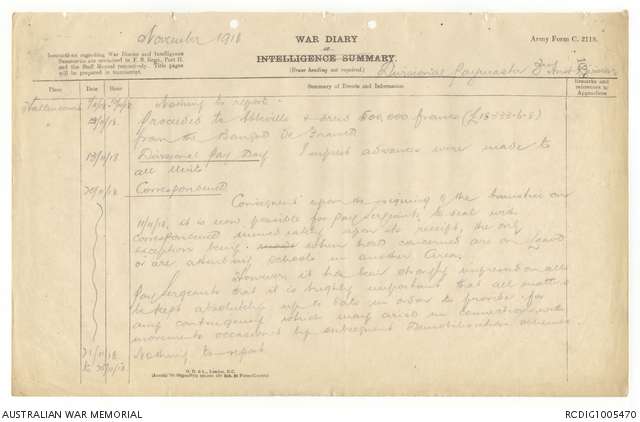 November 1918
WAR DIARY
or
INTELLIGENCE SUMMARY.
(Erase heading not required.)
Army Form C. 2118.
Instructions regarding War Diaries and Intelligence
Summaries are contained in F. S. Regs., Part II.
and the Staff Manual respectively. Title pages
will be prepared in manuscript.
Divisional Paymaster
Place Date Hour Summary of Events and Information Remarks and references to Appendices
Nothing to report.
Proceeded to Abbeville & drew 500,000 francs
from the Banque de France
Divisional Pay Day Imprest advances were made to
all Units
Correspondence
Consequent upon the signing of the Armistice on
11/11/18, it is now possible for pay Sergeants to deal with
correspondence immediately upon its receipt, the only
exception being when those concerned are on leave
or are attending schools in another area.
However it has been strongly impressed on all
Pay Sergeants that it is highly important that all matters
be kept absolutely up to date in order to provide for
any contingency which may arise in connection with
movements occasioned by subsequent Demobilisation
Nothing to report
AUSTRALIAN WAR MEMORIAL
RCDIG1005470